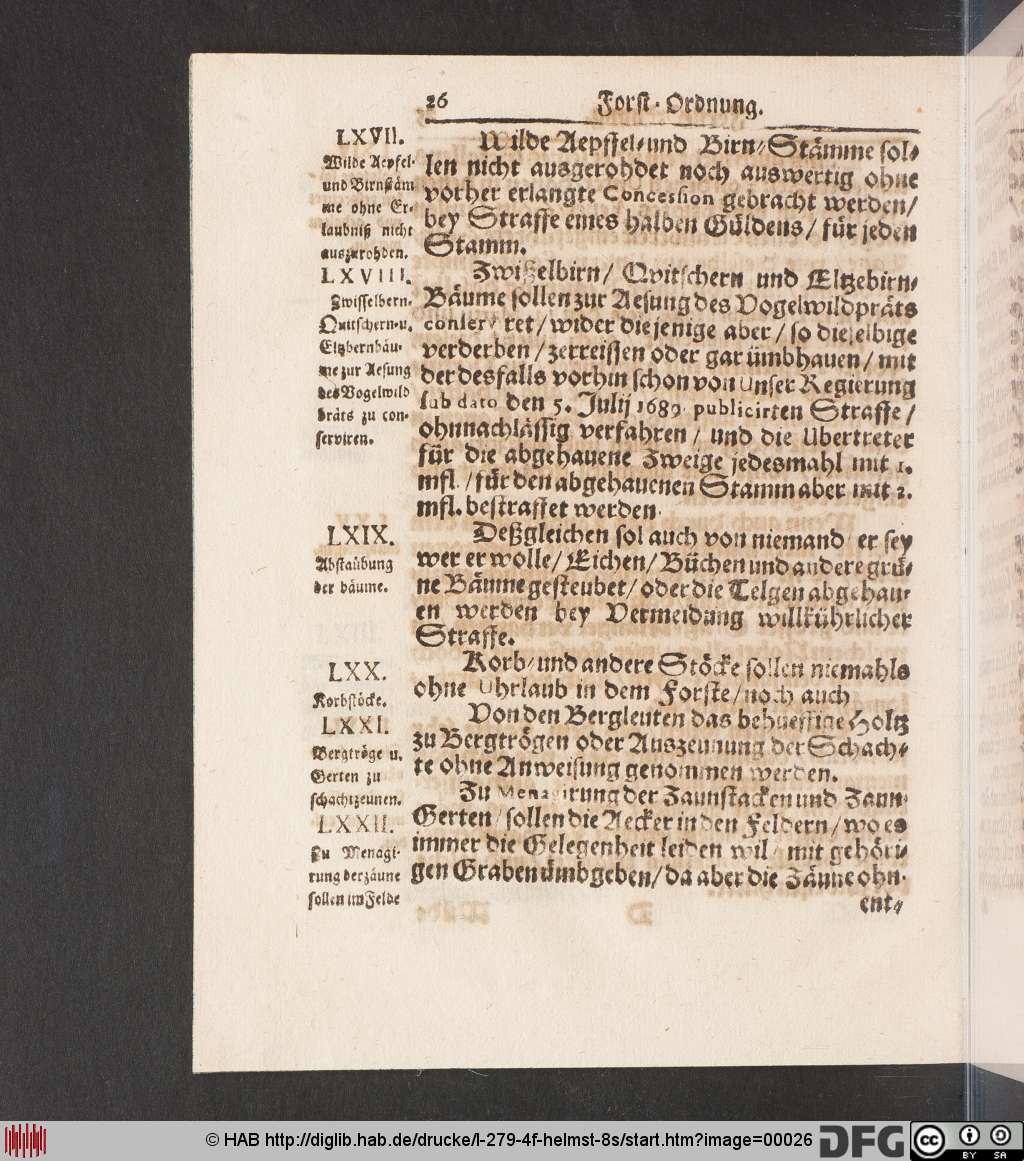 26 Forst-Ordnung.
LXVII.
Wilde Aepfel-
und Birnstäm
me ohne Er-
laubniß nicht
auszurohden.
Wilde Aepffel- und Birn-Stämme sol-
len nicht ausgerohdet noch auswertig ohne
vorher erlangte Concession gebracht werden/
bey Straffe eines halben Güldens/ für jeden
Stamm.
LXVIII.
Zwisselbern-
Quitschern-u.
Eltzbernbäu-
me zur Aesung
des Vogelwild
bräts zu con-
serviren.
Zwißelbirn/ Qvitschern und Eltzebirn-
Bäume sollen zur Aesung des Vogelwildpräts
conserviret/ wider diejenige aber/ so dieselbige
verderben/ zerreissen oder gar ümbhauen/ mit
der desfalls vorhin schon von Unser Regierung
sub dato den 5. Julij 1689. publicirten Straffe/
ohnnachlässig verfahren/ und die Ubertreter
für die abgehauene Zweige jedesmahl mit 1.
mfl./ für den abgehauenen Stamm aber mit 2.
mfl. bestraffet werden.
LXIX.
Abstaübung
der bäume.
Deßgleichen sol auch von niemand er sey
wer er wolle/ Eichen/ Büchen und andere grü-
ne Bäume gesteubet/ oder die Telgen abgehau-
en werden bey Vermeidung willkührlicher
Straffe.
LXX.
Korbstöcke.
Korb- und andere Stöcke sollen niemahls
ohne Uhrlaub in dem Forste/ noch auch
LXXI.
Bergtröge u.
Gerten zu
schachtzeunen.
Von den Bergleuten das behueffige Holtz
zu Bergtrögen oder Auszeunung der Schach-
te ohne Anweisung genommen werden.
LXXII.
Zu Menagi-
rung der zäune
sollen im Felde
Zu Menagirung der Zaunstacken und Zaun-
Gerten/ sollen die Aecker in den Feldern/ wo es
immer die Gelegenheit leiden wil/ mit gehöri-
gen Graben ümbgeben/ da aber die Zäune ohn-
ent-
© HAB http://diglib.hab.de/drucke/l-279-4f-helmst-8s/start.htm?image=00026 DFG cc BY SA